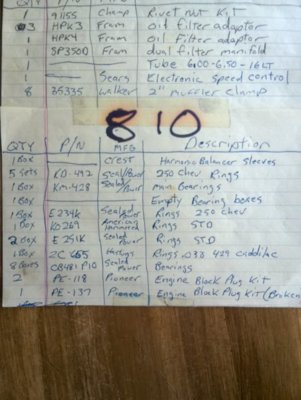 QTY P/N MFG
1 91155 Champ Rivet nut Kit
3 HPK3 Fram Oil filter adaptor
1 HPK4 Fram Oil Filter adaptor
1 SP350D Fram dual filter manifold
1 Tube 6:00-6.50-16LT
1 — Sears Electronic speed control
8 35335 Walker 2" Muffler Clamp
810
QTY P/N MFG Description
1 Box Crest Harmonic Balancer Sleeves
5 Sets KD-492 Sealed/Power 250 Chev Rings
1 Box KM-428 Sealed/Power Main Bearings
1 Box Empty Bearing boxes
1 Box E234K Sealed Power Rings 250 Chev
1 Box KD269 American Hammered Rings STD
2 Box E251K Sealed Power Rings STD
1 Box 2C Hastings Rings 429 Cadillac
8 Boxes CB481 P10 Sealed Power Bearings
2 PE-118 Pioneer Engine Block Plug Kit
1 PE-137 Pioneer Engine Block Plug Kit (Broken